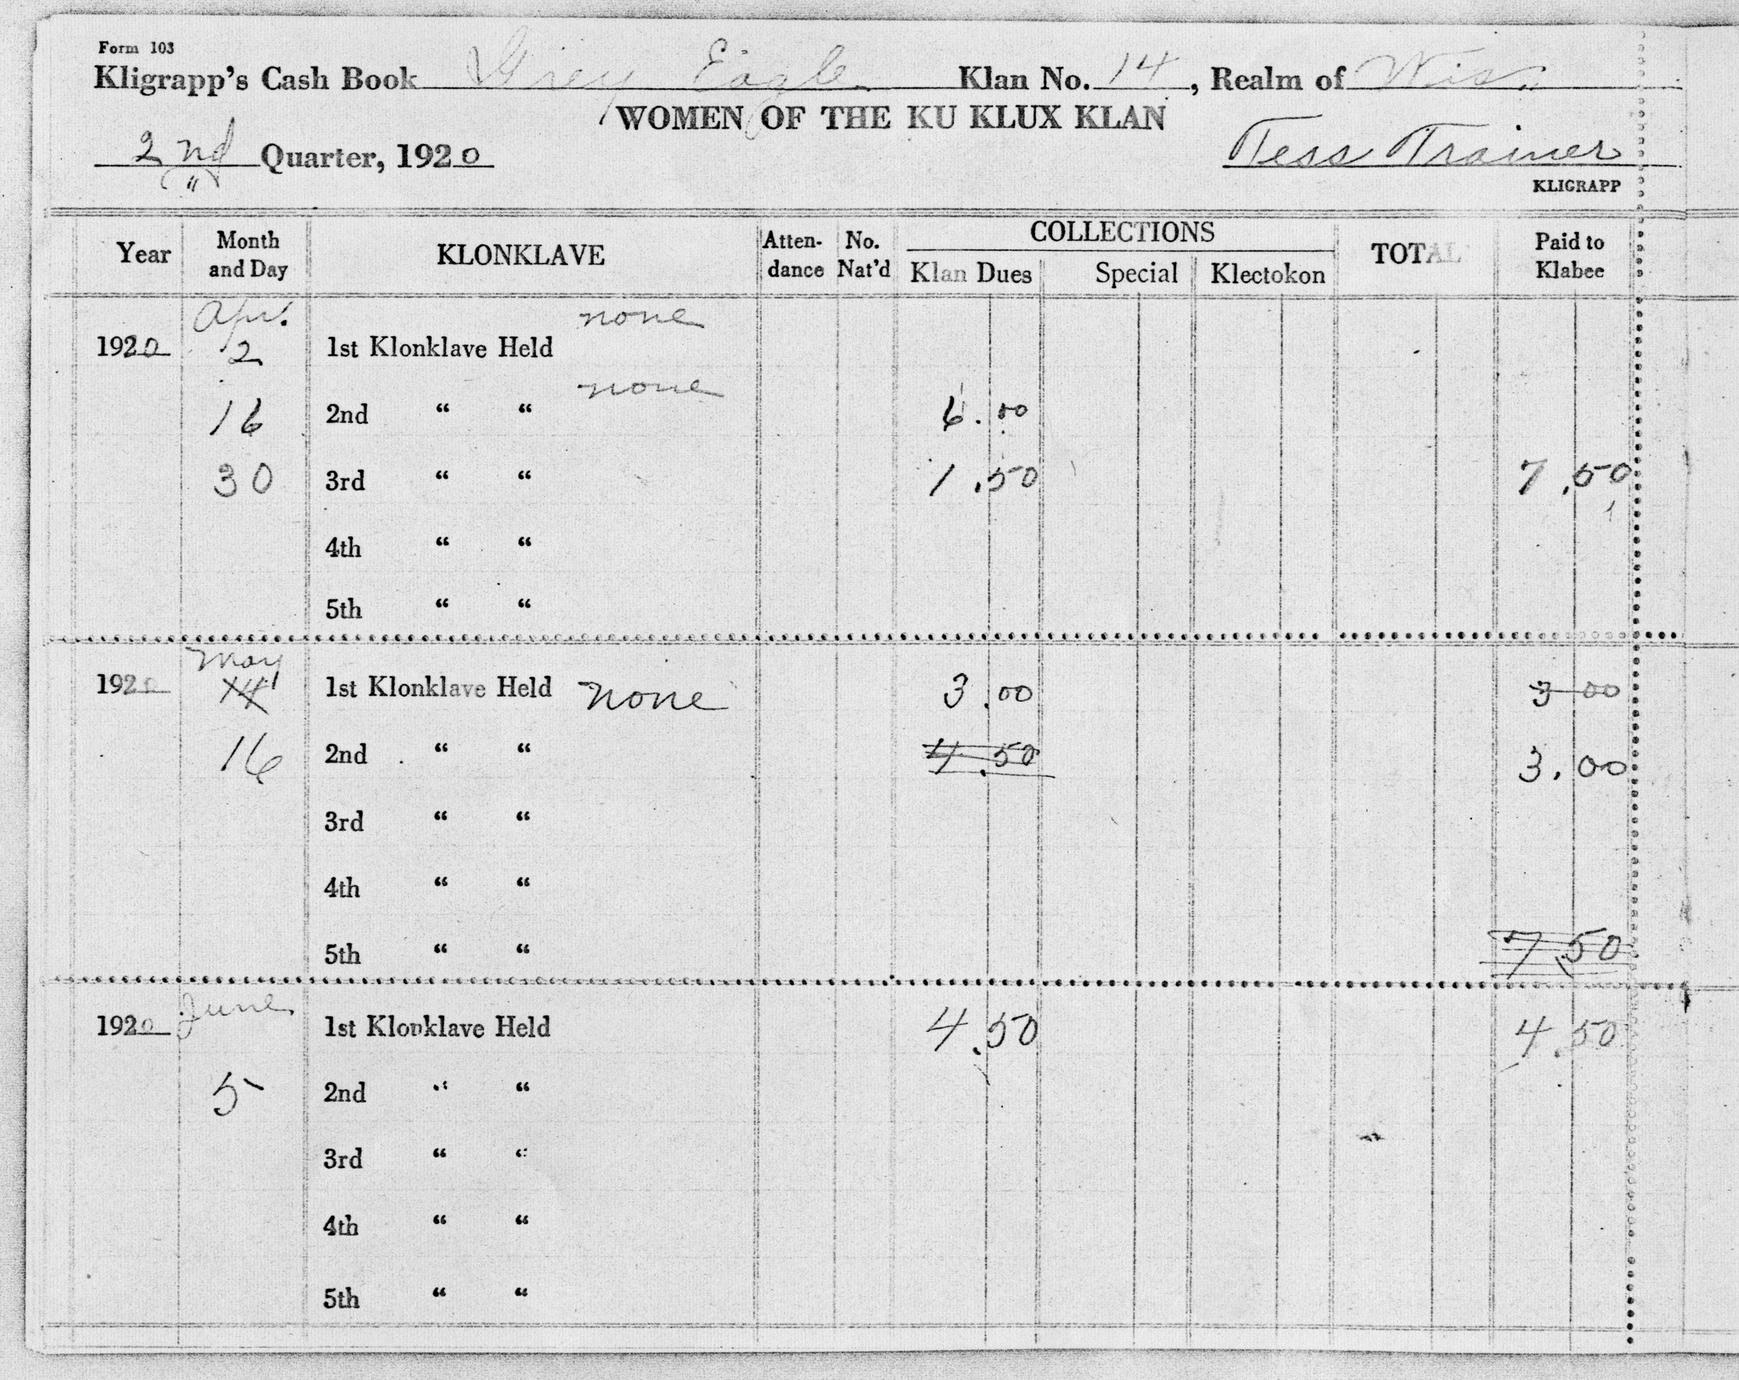 Form 103
Kligrapp's Cash Book Grey Eagle Klan No. 14, Realm of Wis.
WOMEN OF THE KU KLUX KLAN
2nd Quarter, 1920 Tess Trainer
" KLIGRAPP
Year Month and Day KLONKLAVE Atten-dance No. Nat'd COLLECTIONS Klan Dues Special Klectokon TOTAL Paid to Klabee
Apr. none
1920 2 1st Klonklave Held
none
16 2nd " " 6.00
30 3rd " " 1.50 7.50
4th " "
5th " "
May
1920 14 1st Klonklave Held none 3.00 3 00
16 2nd " " 4.50 3.00
3rd " "
4th " "
5th " " 7.50
June
1920 1st Klonklave Held 4.50 4.50
5 2nd " "
3rd " "
4th " "
5th " "